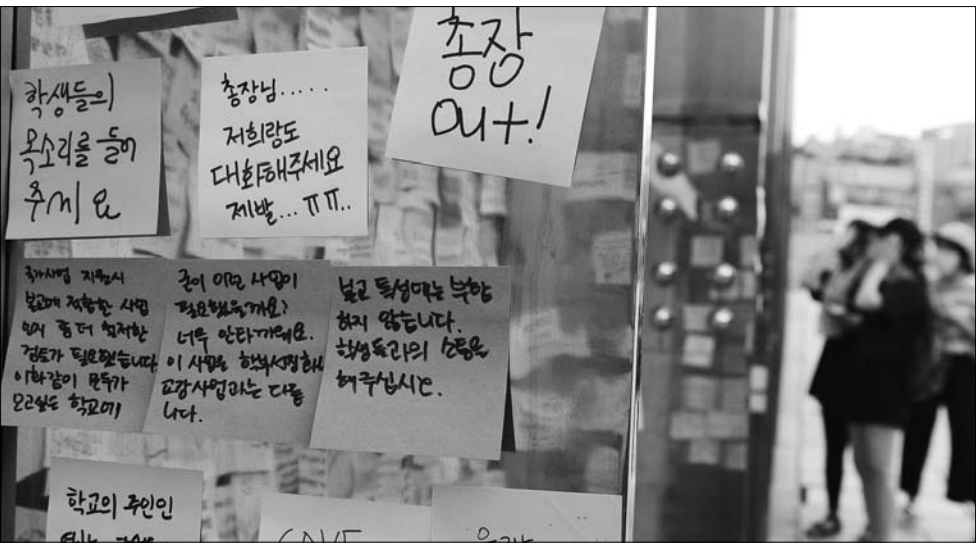 학생들의
목소리를 들어
주세요
총장님.....
저희랑도
대화해주세요
제발... ㅠㅠ..
총장
Out!
국가사업 지원시
본교에 적합한 사업
인지 좀 더 철저한
검토가 필요했습니다
이화같이 모두가
오고싶은 학교에
굳이 이런 사업이
필요했을까요?
너무 안타까워요.
이 사업은
교감사업과는 다릅
니다.
부합
하지 않습니다.
학생들과의 소통을
해주십시오.
학교의 주인인